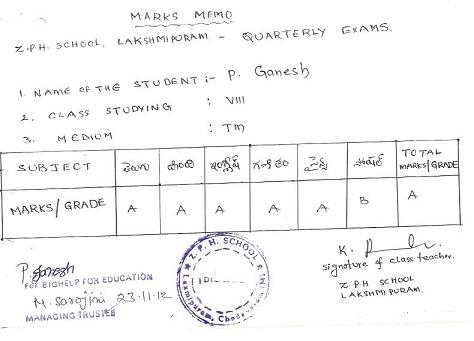 MARKS MEMO
Z.P.H. SCHOOL, LAKSHMIPURAM - QUARTERLY EXAMS.
1. NAME OF THE STUDENT :- P. Ganesh
2. CLASS STUDYING : VIII
3. MEDIUM : TM
SUBJECT తెలుగు హిందీ ఇంగ్లీష్ గణితం సైన్స్ సోషల్ TOTAL MARKS/GRADE
MARKS/GRADE A A A A A B A
P. Ganesh
For BIGHELP FOR EDUCATION
M. Sarojini 23.11.12
MANAGING TRUSTEE
Z. P. H. SCHOOL
Laxmipuram, Chodavaram (M)
K.
Signature of class teacher.
Z.P.H SCHOOL
LAKSHMIPURAM.